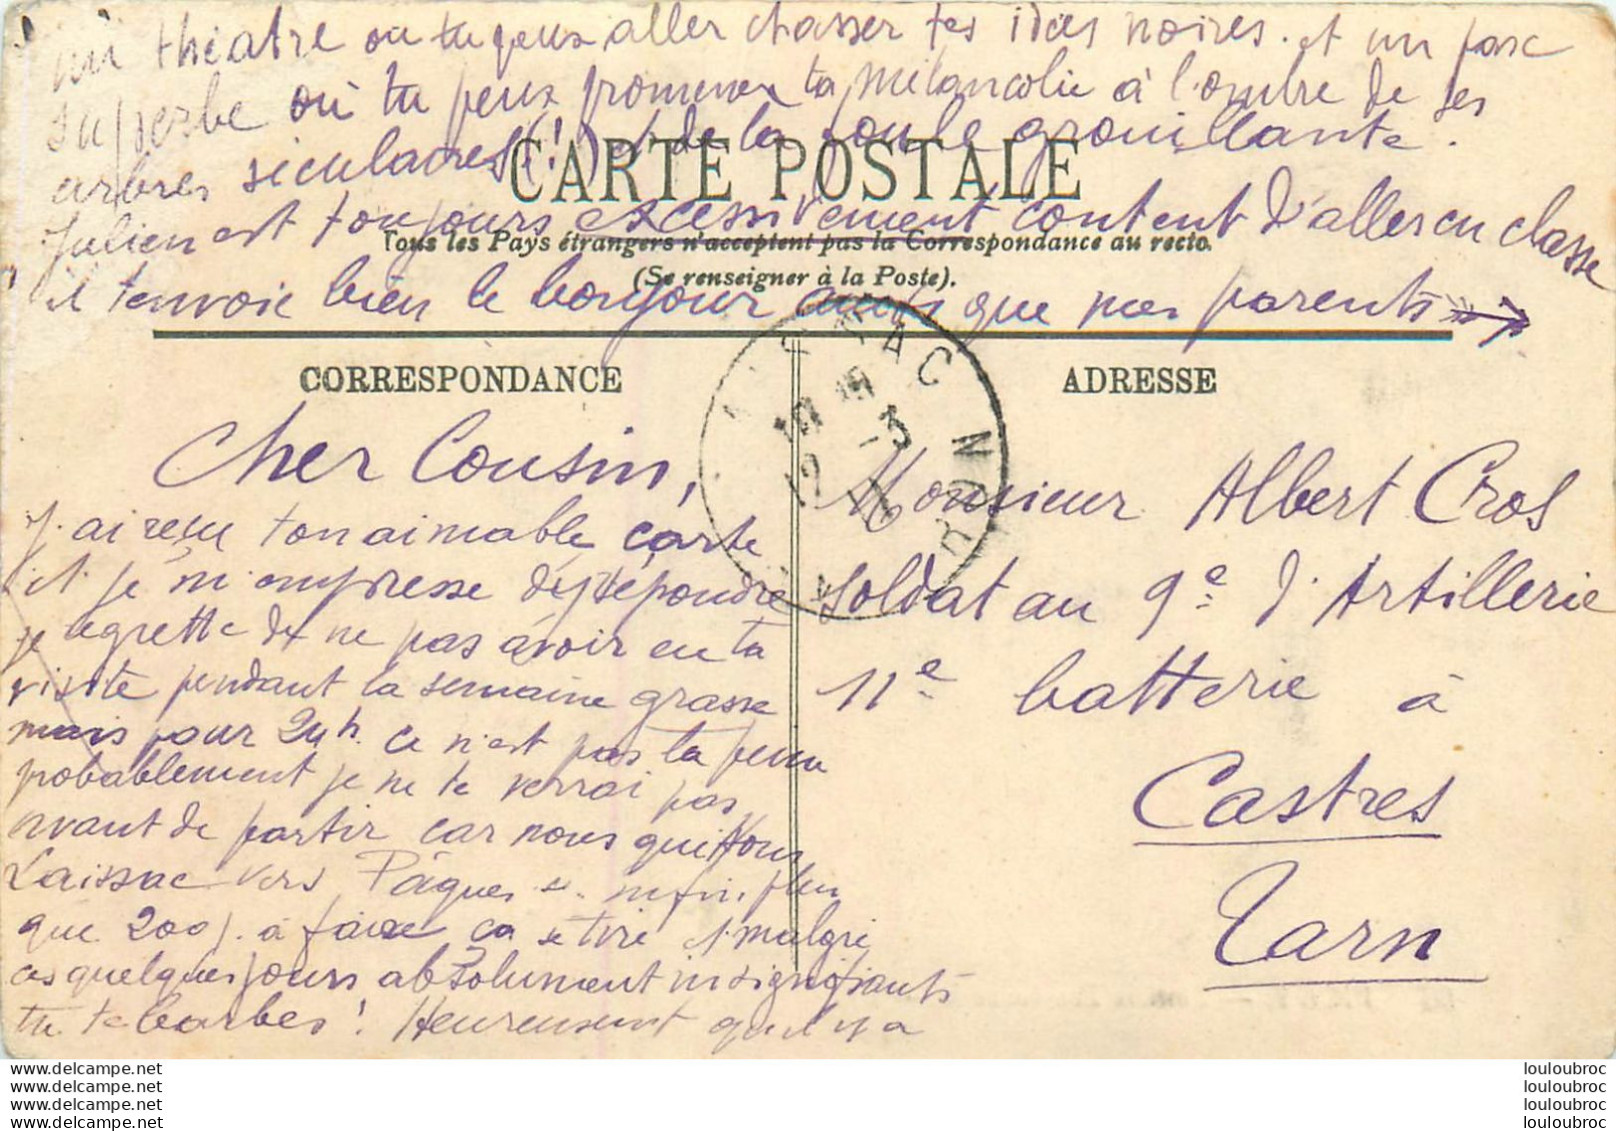 un théatre où tu peux aller chasser tes idées noires. et un parc
superbe où tu peux promener ta mélancolie à l'ombre de ses
arbres séculaires (!) et de la foule grouillante.
CARTE POSTALE
Julien est toujours excessivement content d'aller en classe
Tous les Pays étrangers n'acceptent pas la Correspondance au recto.
(Se renseigner à la Poste).
il t'envoie bien le bonjour ainsi que mes parents
CORRESPONDANCE
Cher Cousin,
J'ai reçu ton aimable carte
et je m'empresse d'y répondre
je regrette de ne pas avoir eu ta
visite pendant la semaine grasse
mais pour 24h. ce n'est pas la peine
probablement je ne te verrai pas
avant de partir car nous quittons
Laissac vers Pâques enfin, plus
que 200 j. à faire ça se tire et malgré
ces quelques jours absolument insignifiants
tu te barbes! Heureusement qu'il y a
ADRESSE
Monsieur Albert Cros
soldat au 9e d'Artillerie
11e batterie à
Castres
Tarn
www.delcampe.net
www.delcampe.net
www.delcampe.net
www.delcampe.net
louloubroc
louloubroc
louloubroc
louloubroc